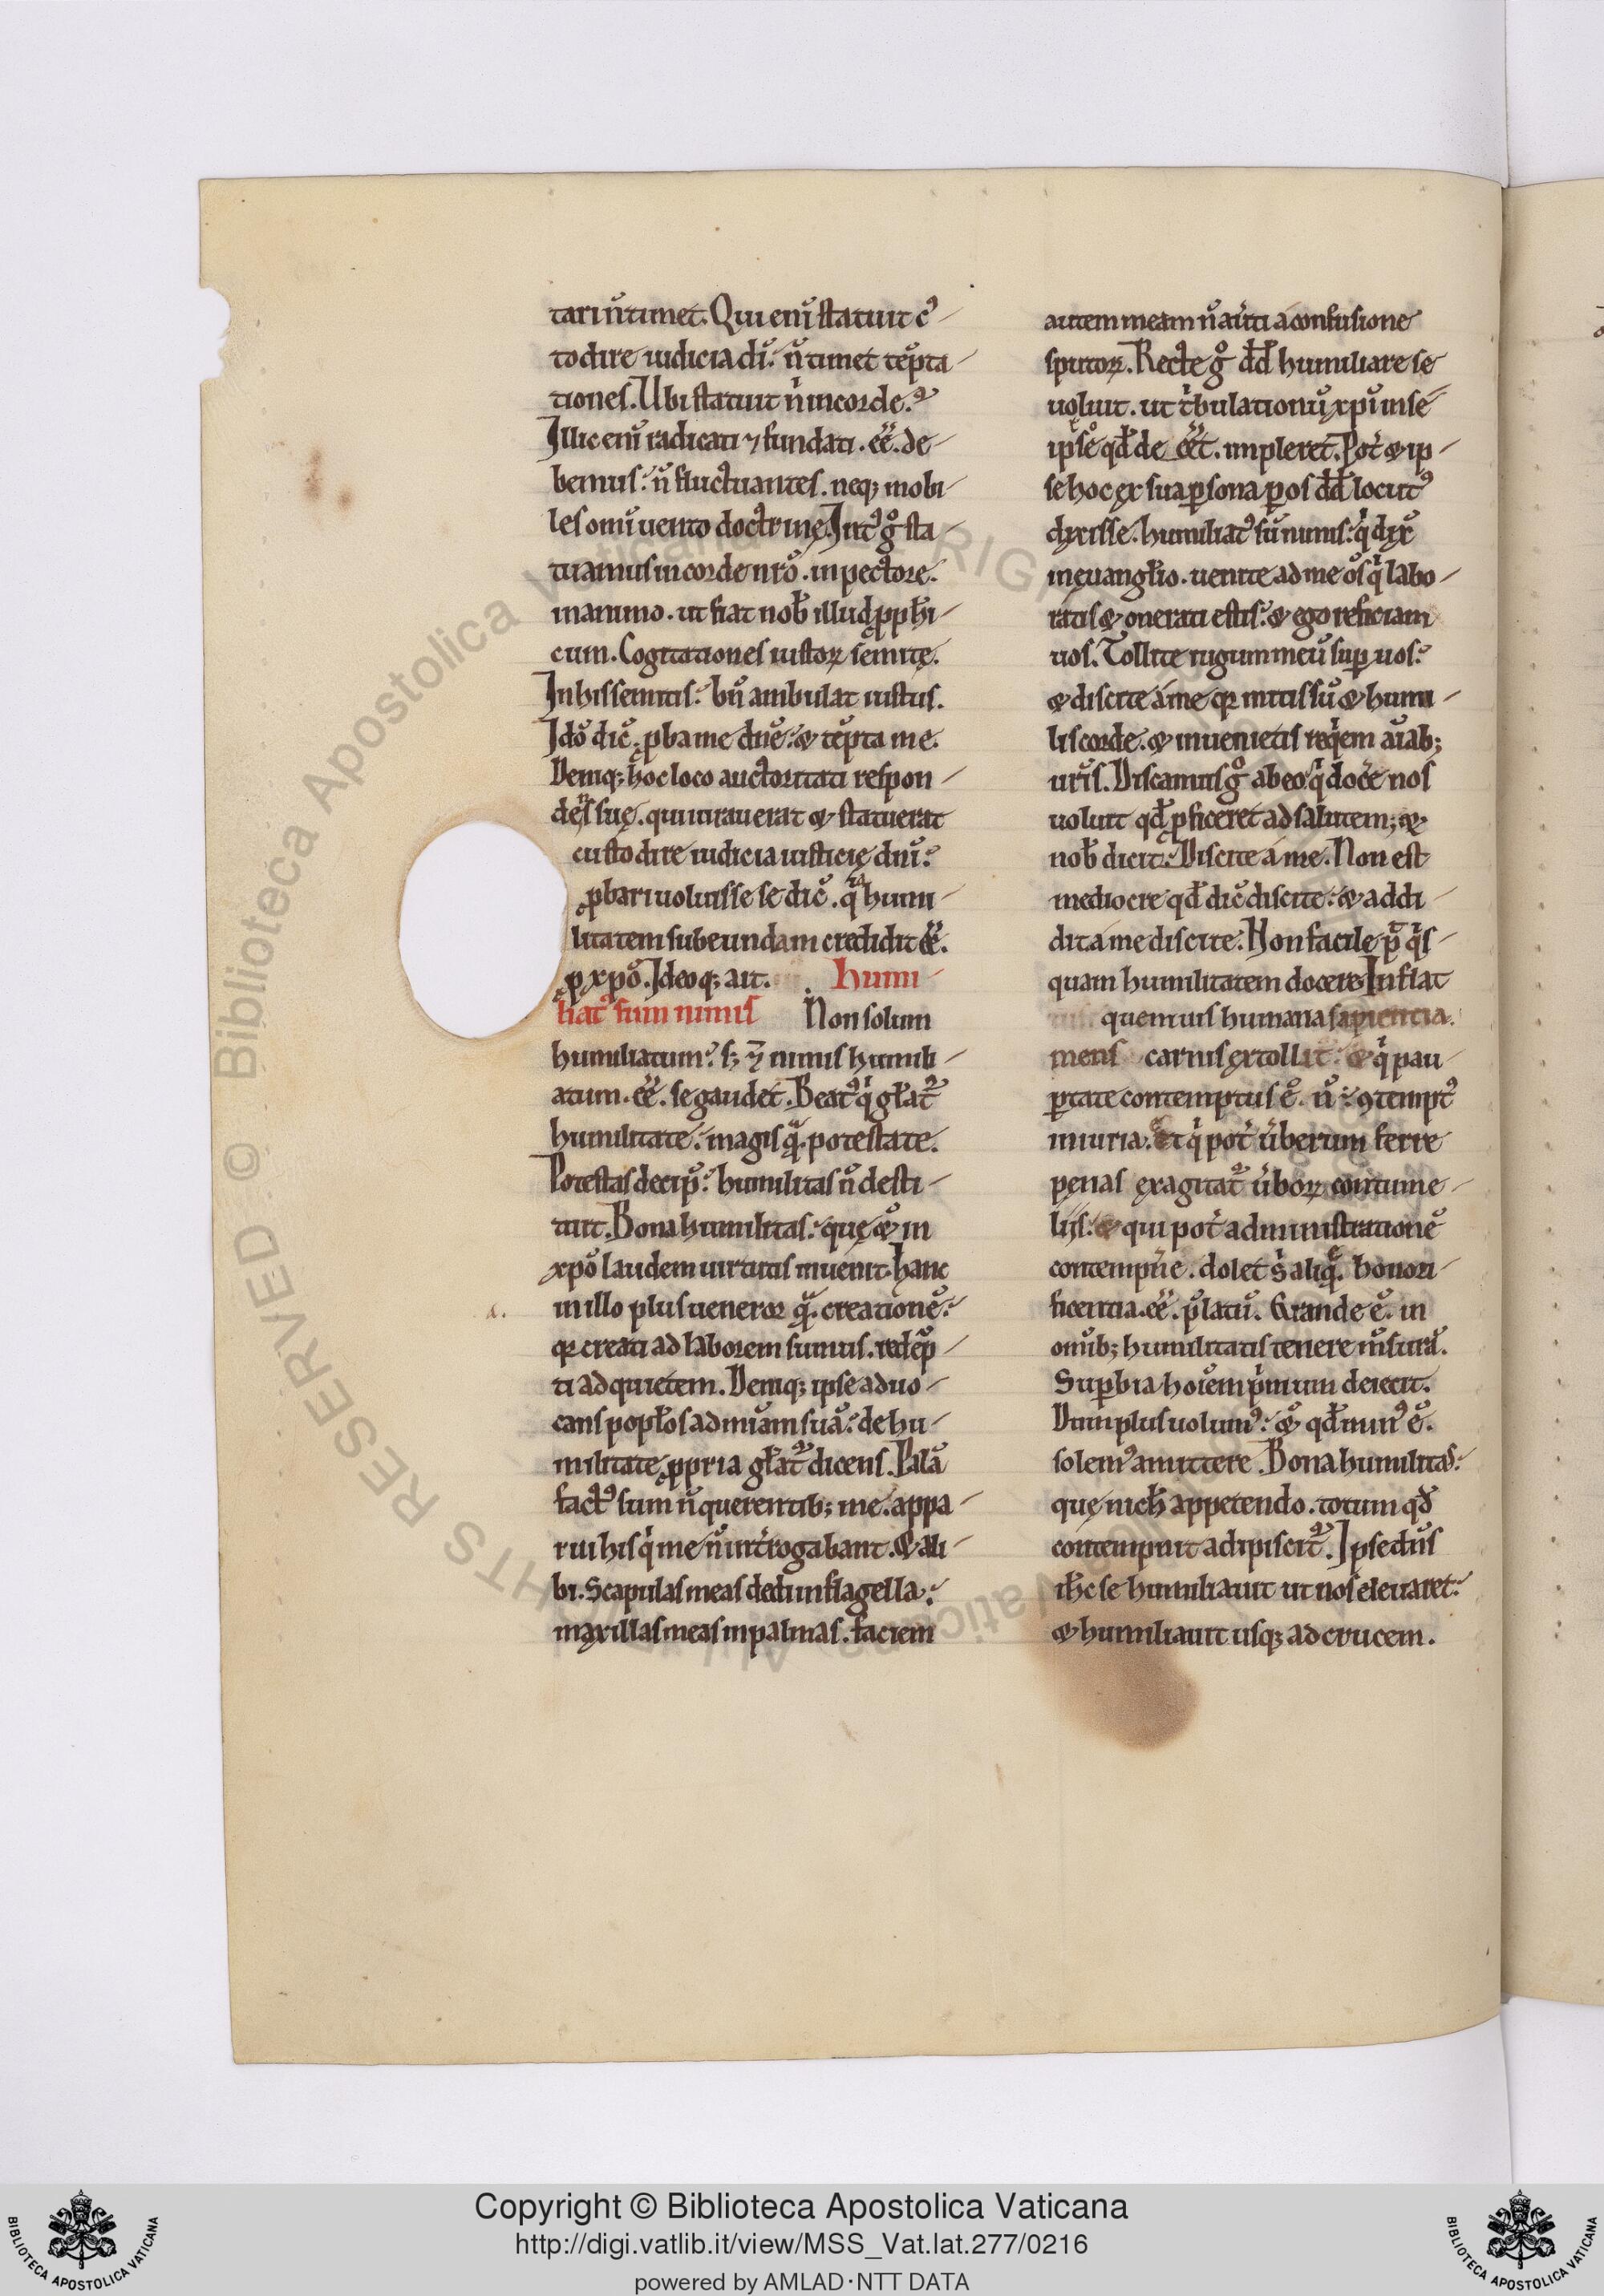 tari ñ timet. Qui eni̅ statuit c̕
todire iudicia di̅. ñ timet te̅pta
tiones. Ubi statuit ñ in corde.
Illic eni̅ radicati ⁊ fundati . ee̅. de
bemus. ñ fluctuantes. neq; mobi
les omi̅ uento doctrinę. Int̕ g° sta
tuamus in corde nr̅o . in pectore.
in animo . ut fiat nob̅ illud ꝓph̅i
cum. Cogitationes iustoꝝ semitę.
In his semitis. bn̅ ambulat iustus.
Ido̅ dic̅. ꝓba me dn̅e. & te̅pta me.
Deniq; hoc loco auctoritati respon
den̅s suę. qui iurauerat & statuerat
custodire iudicia iusticię dn̅i.
ꝓbari uoluisse se dic̅. qa humi
litatem subeundam credidit ee̅.
ꝓ xp̅o. Ideoq; ait. Humi
liat̕ sum nimis Non solum
humiliatum. s; ⁊ nimis humili
atum . ee̅. se gaudet. Beat̕ qi gl̅at̕
humilitate. magis qa̅. potestate.
Potestas decip̅. humilitas ñ desti
tuit. Bona humilitas. quę & in
xp̅o laudem uirtutis inuenit. hanc
in illo plus ueneror qa̅. creatione̅.
qꝛ creati ad laborem sumus. rede̅p
ti ad quietem. Deniq; ipse aduo
cans popl̅os ad mi̅am sua̅. de hu
militate ꝓpria gl̅at̕ dicens. Pala̅
fact̕ sum ñ querentib; me. appa
rui his qi me ñ int̕rogabant. & ali
bi. Scapulas meas dedi in flagella.
maxillas meas in palmas. faciem
autem meam ñ au̕ti a confusione
sputoꝝ. Recte g° dd̅ humiliare se
uoluit . ut t̕bulationu̅ xp̅i in se
ipse qd̅ de ee̅t . impleret. Pot̕ & ip
se hoc ex sua ꝑsona ꝑ os dd̅ locut̕
dixisse. humiliat̕ su̅ nimis. qi dix̅
in euangl̅io . uenite ad me om̅s qi labo
ratis & onerati estis. & ego reficiam
uos. Tollite iugum meu̅ suꝑ uos.
& discite a me qꝛ mitis su̅ & humi
lis corde. & inuenietis reqiem ai̅ab;
ur̅is. Discamus g° ab eo. qi doce̅ nos
uoluit qd̅ ꝓficeret ad salutem; &
nob̅ dicit. Discite a me. Non est
mediocre qd̅ dic̅ discite. & addi
dit a me discite. Non facile p̅t qis
quam humilitatem docere. Inflat
quemuis humana sapientia.
mens carnis extollit. & qi pau
ꝑtate contemptus e̅. ñ. ꝯtempt̕
iniuria. Et qi pot̕ u̕berum ferre
penas exagitat̕ u̕boꝝ contume
liis. & qui pot̕ administratione̅
contempn̅e . dolet s̕ aliqe̅. honori
ficentia . ee̅. p̅latu̅. Grande e̅. in
om̅ib; humilitatis tenere m̅sura̅.
Suꝑbia hoi̅em pimum deiecit.
Dum plus uolum̕. & qd̅ min̕ e̅.
solem̕ amittere. Bona humilitas.
quę nich̅ appetendo . totum qd̅
contempnit adipiscit̕. Ipse dn̅s
ih̅c se humiliauit ut nos eleuaret.
& humiliauit usq; ad crucem.
Copyright © Biblioteca Apostolica Vaticana
http://digi.vatlib.it/view/MSS_Vat.lat.277/0216
powered by AMLAD·NTT DATA